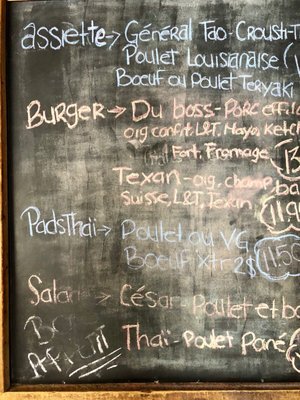 assiette→ Général Tao-Croust-
Poulet Louisianaise (
Boeuf ou Poulet Teryaki
Burger→ Du boss-Porc effil
oig confit, L&T, Mayo, Ketc
Fort, Fromage
Texan-oig, champ, ba
Suisse, L&T, Texan
PadsThaï→ Poulet ou VG
Boeuf xtr 2$ 11.50
Salade→ César-Poulet et b
Thaï-Poulet Pané